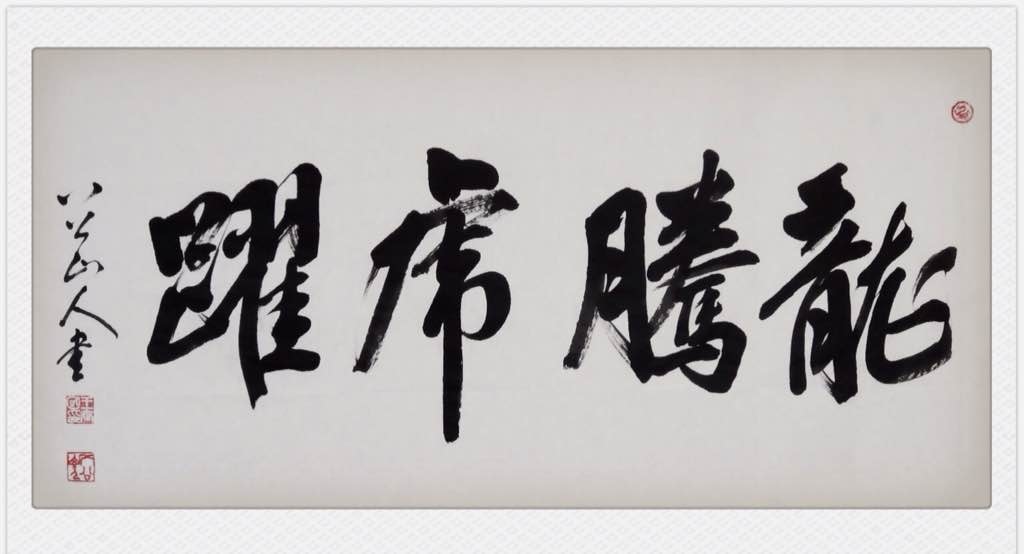 龍騰虎躍
八公山人書